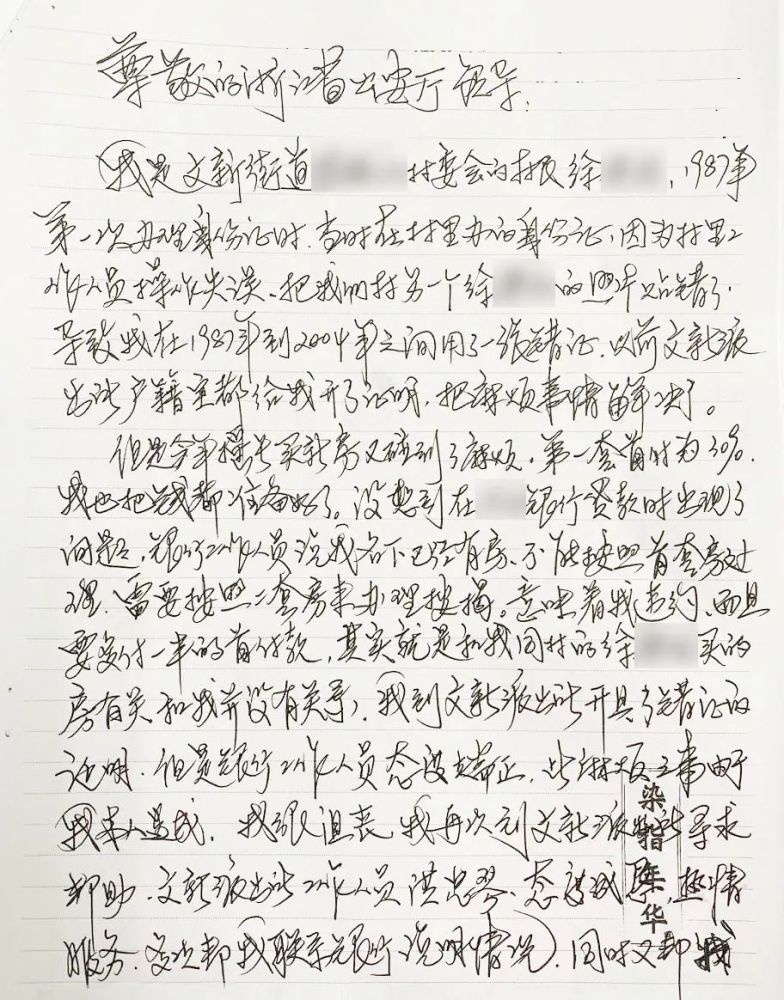 尊敬的浙江省公安厅领导:
我是文新街道 村委会的村民徐 ,1987年
第一次办理身份证时,当时在村里办的身份证,因为村里工
作人员操作失误、把我们村另一个徐 的照片贴错了.
导致我在1987年到2004年之间用了一张错证.以前文新派
出所户籍室都给我开了证明,把麻烦事情解决了。
但是今年摇号买新房又碰到了麻烦.第一套首付为30%.
我也把钱都准备好了。没想到在 银行贷款时出现了
问题,银行工作人员说我名下已经有房、不能按照首套房办
理.需要按照二套房来办理按揭。意味着我违约、而且
要多付一半的首付款,其实就是和我同村的徐 买的
房有关和我并没有关系,我到文新派出所开具了错证的
证明.但是银行工作人员态度 ,此麻烦之事由于
我本人造成.我很沮丧 我再次到文新派出所寻求
帮助.文新派出所工作人员洪忠琴、态度诚恳,热情
服务.多次帮我联系银行说明情况,同时又帮我
染指年华